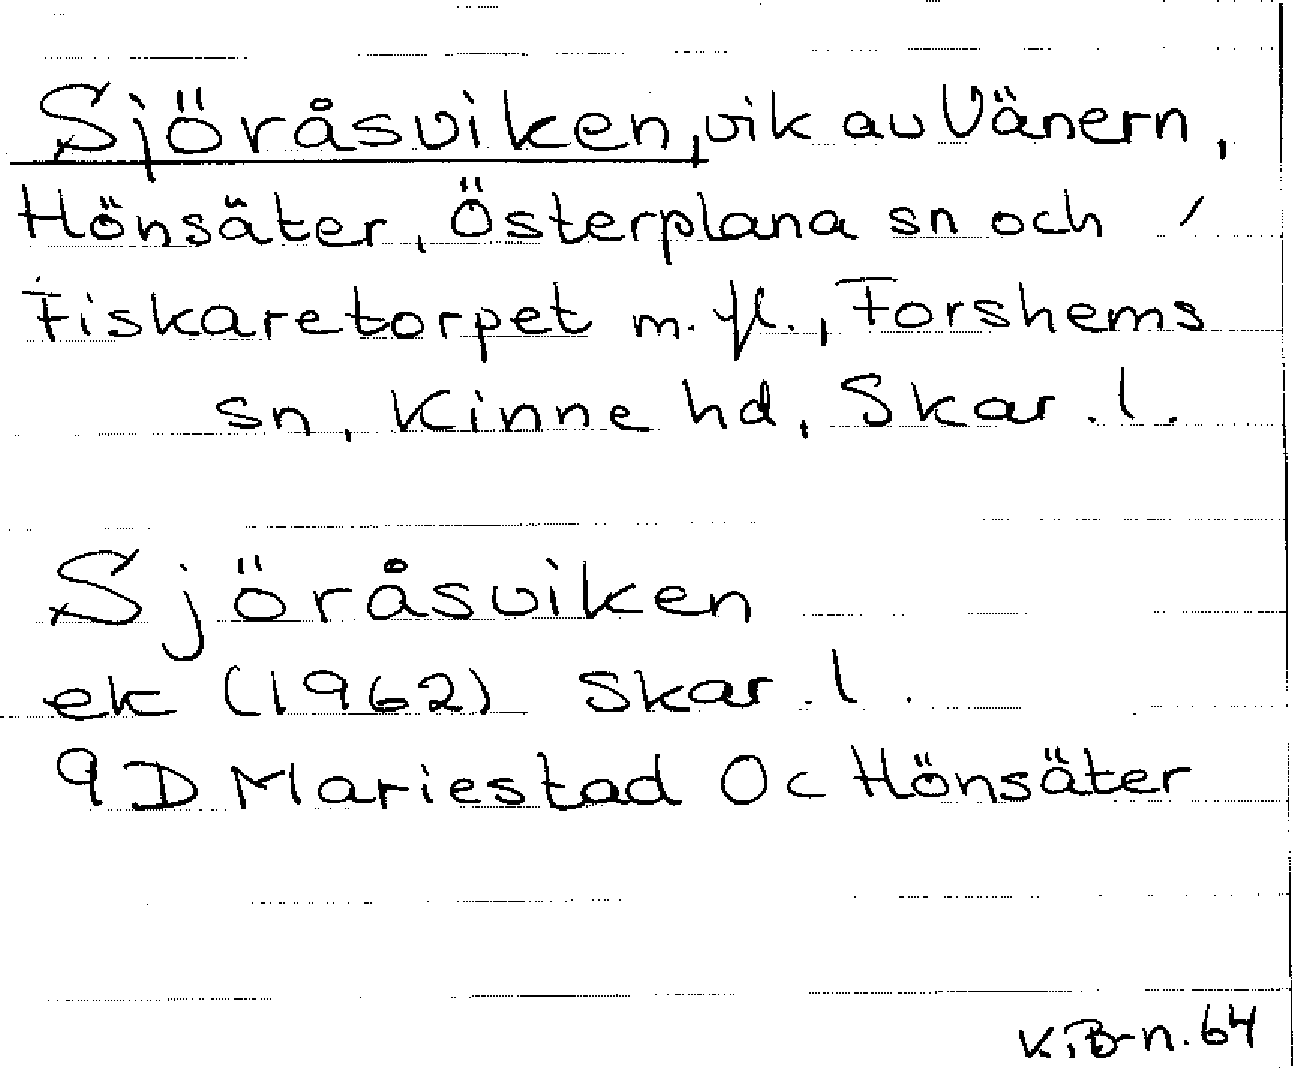 Sjöråsviken, vik av Vänern,
Hönsäter, Österplana sn och
Fiskaretorpet m. fl., Forshems
sn, Kinne hd, Skar. l.
Sjöråsviken
ek (1962) Skar. l.
9D Mariestad Oc Hönsäter
K. B-n. 64